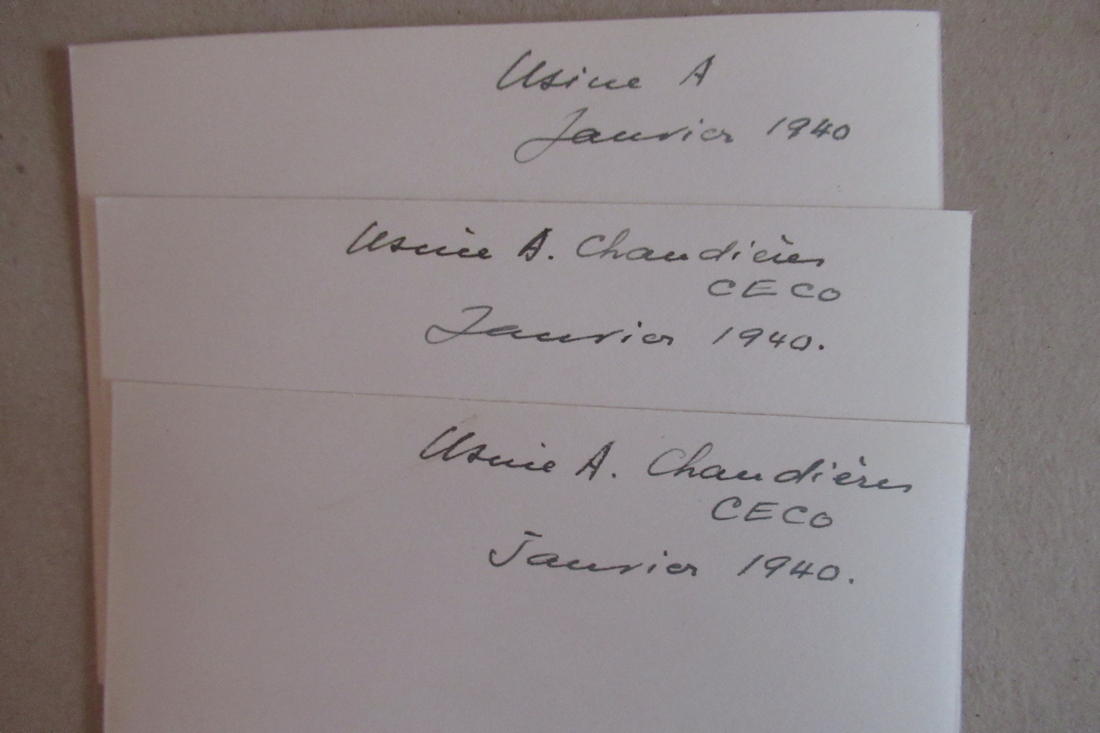 Usine A
Janvier 1940
Usine A. Chaudières
CECO
Janvier 1940.
Usine A. Chaudières
CECO
Janvier 1940.